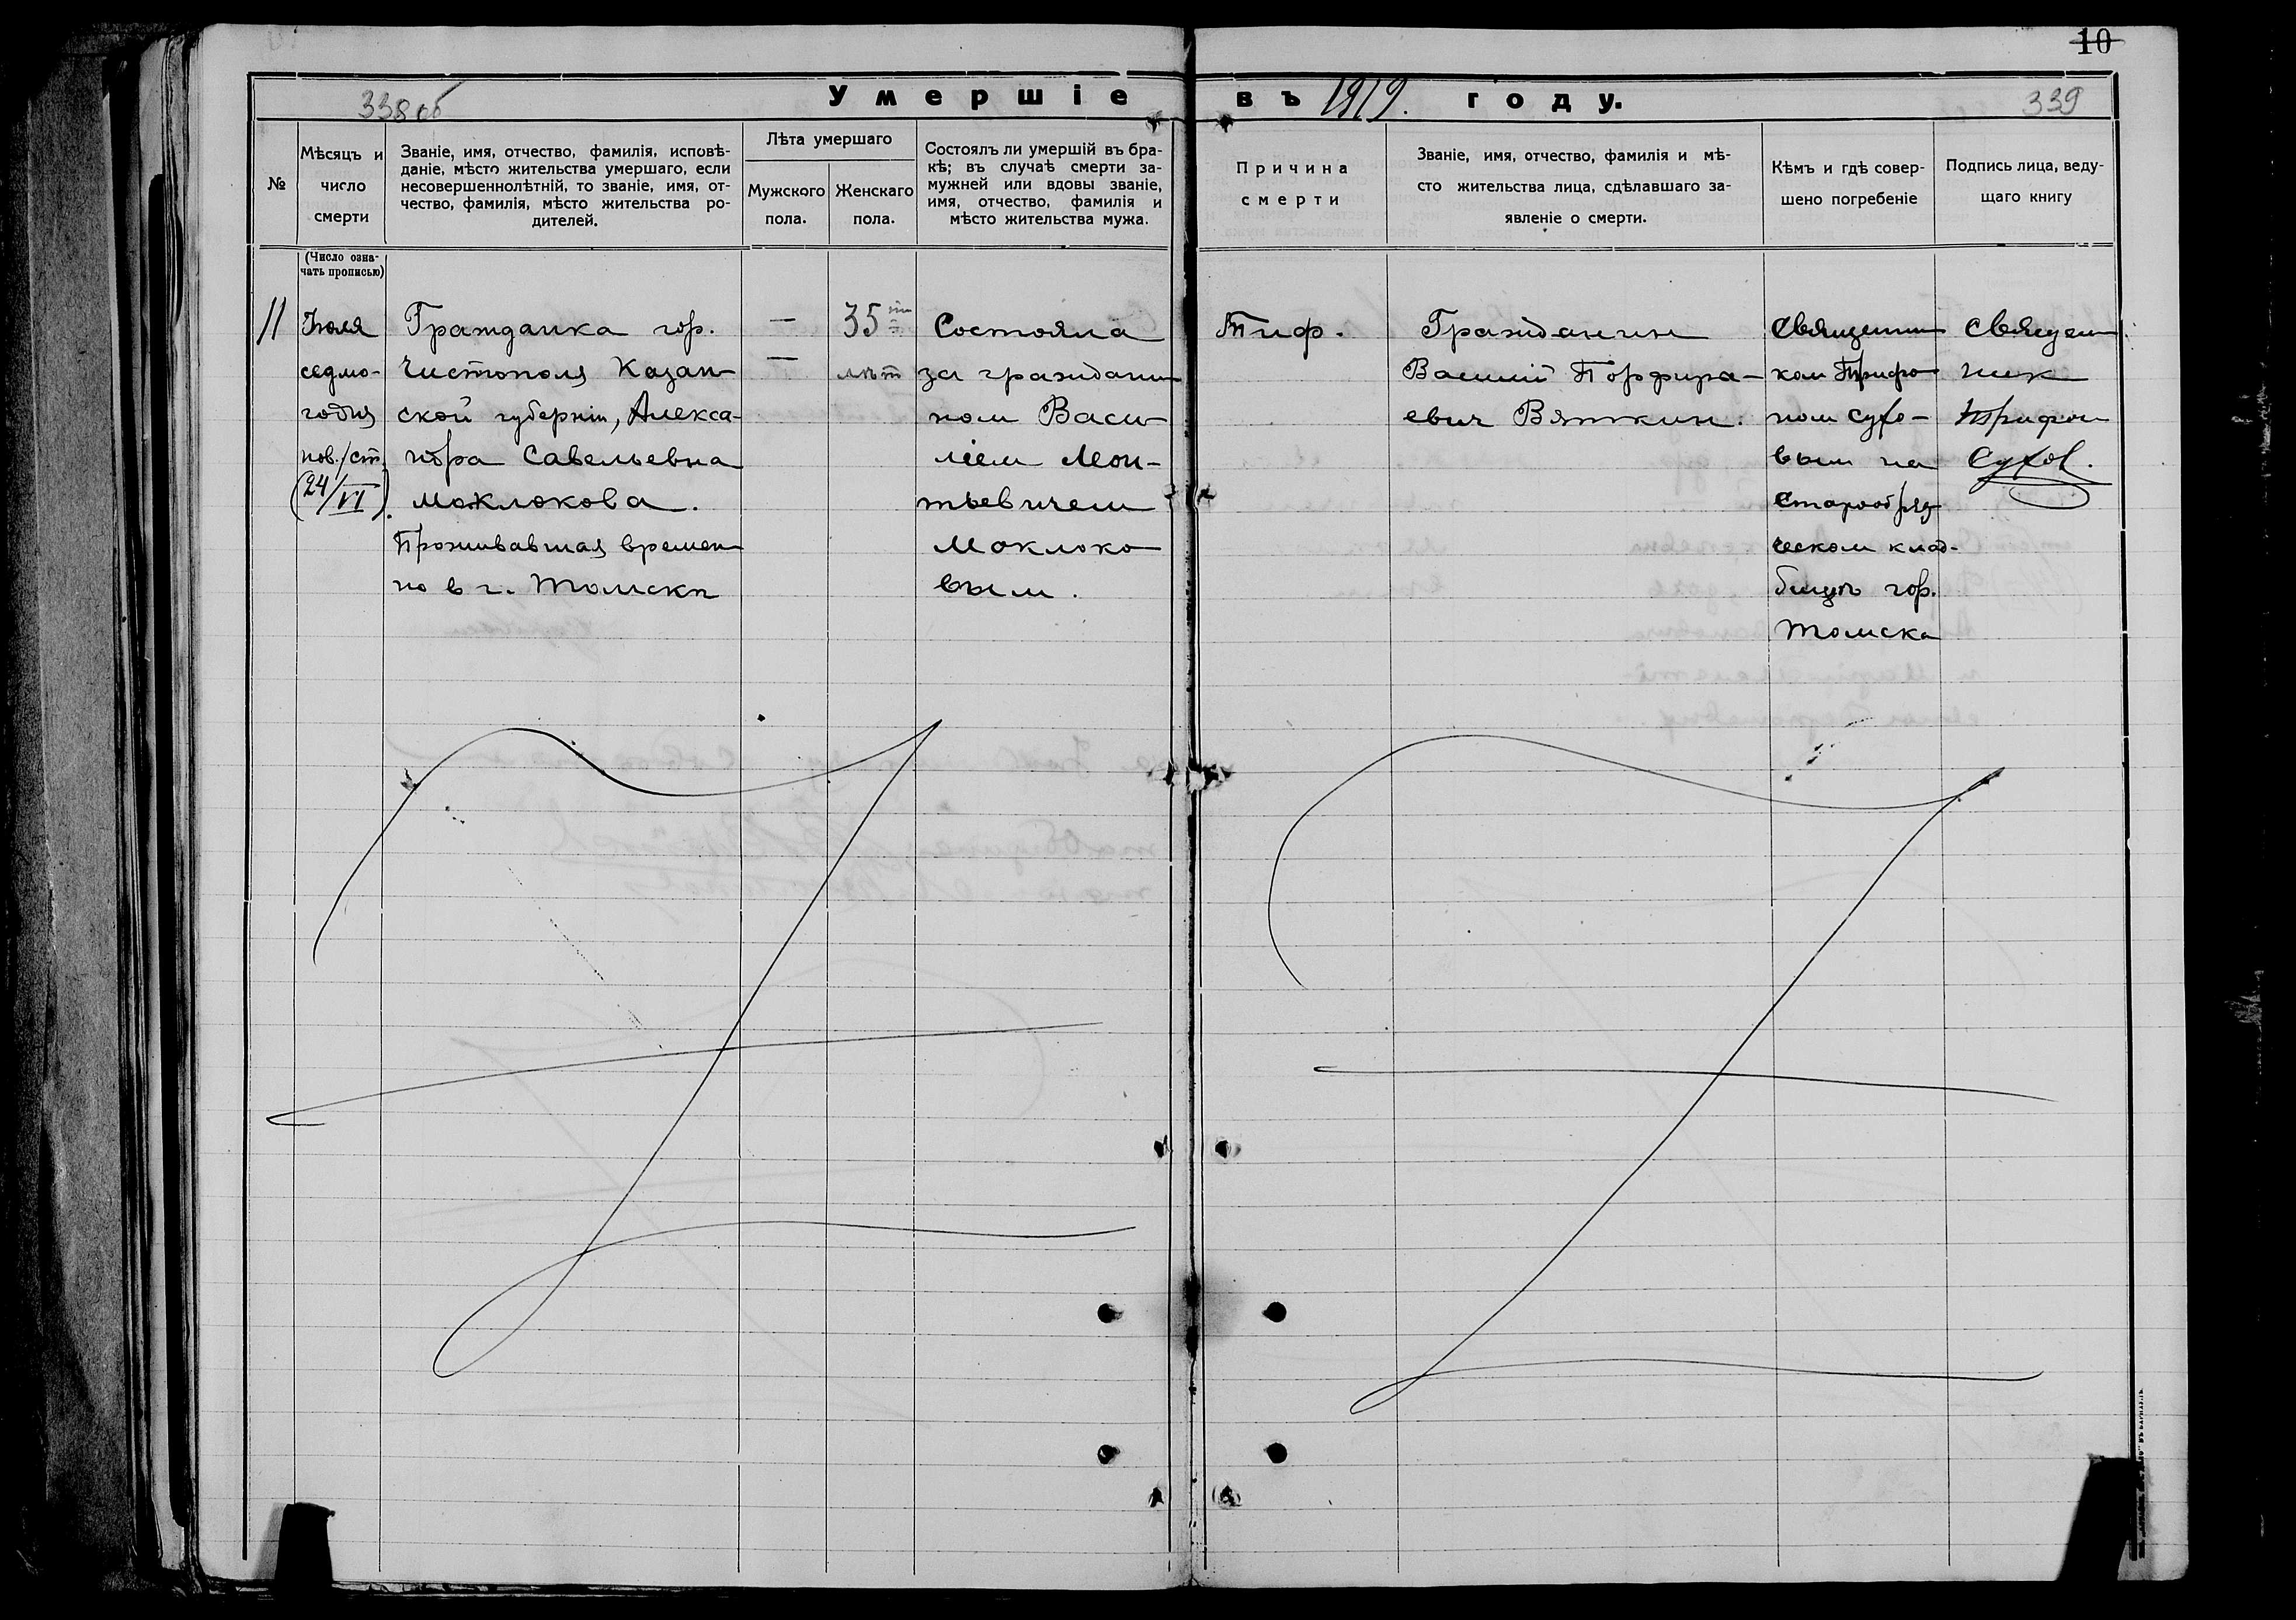 10
338об
Умершіе
въ 1919. году.
339
№
Мѣсяцъ и
число
смерти
Званіе, имя, отчество, фамилія, исповѣ-
даніе, мѣсто жительства умершаго, если
несовершеннолѣтній, то званіе, имя, от-
чество, фамилія, мѣсто жительства ро-
дителей.
Лѣта умершаго
Мужского
пола.
Женскаго
пола.
Состоялъ ли умершій въ бра-
кѣ; въ случаѣ смерти за-
мужней или вдовы званіе,
имя, отчество, фамилія и
мѣсто жительства мужа.
Причина
смерти
Званіе, имя, отчество, фамилія и мѣ-
сто жительства лица, сдѣлавшаго за-
явленіе о смерти.
Кѣмъ и гдѣ совер-
шено погребеніе
Подпись лица, веду-
щаго книгу
(Число озна-
чать прописью)
11
Іюля
седмо-
годня
нов./ст.
(24/VI).
Гражданка гор.
Чистополя Казан-
ской губерніи, Алекса-
ндра Савельевна
Моклокова.
Проживавшая времен-
но в г. Томскѣ
—
—
35 ти
лѣт
Состояла
за граждани-
ном Васи-
ліем Меон-
тьевичем
Моклоко-
вым.
Тиф.
Гражданин
Василій Порфирі-
евич Вяткин.
Священни-
ком Трифо-
ном Сухо-
вым на
старообряд-
ческом клад-
бищѣ гор.
Томска
Священ-
ник
Трифон
Сухов.